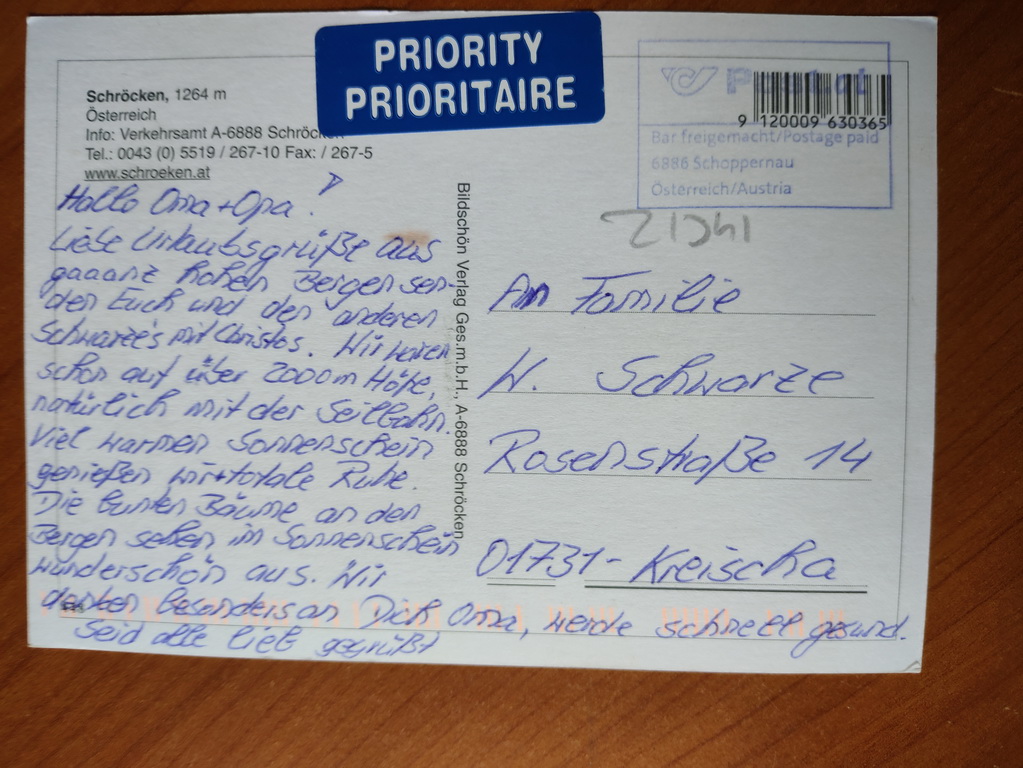 PRIORITY
PRIORITAIRE
Schröcken, 1264 m
Österreich
Info: Verkehrsamt A-6888 Schröcken
Tel.: 0043 (0) 5519 / 267-10 Fax: / 267-5
www.schroeken.at
Post.at
9 120009 630365
Bar freigemacht/Postage paid
6886 Schoppernau
Österreich/Austria
Hallo Oma + Opa.
Liebe Urlaubsgrüße aus
gaaanz hohen Bergen sen-
den Euch und den anderen
Schwarze's mit Christos. Wir waren
schon auf über 2000m Höhe,
natürlich mit der Seilbahn.
Viel warmen Sonnenschein
genießen wir + totale Ruhe.
Die bunten Bäume an den
Bergen sehen im Sonnenschein
wunderschön aus. Wir
denken besonders an Dich Oma, werde schnell gesund.
Seid alle lieb gegrüßt
Bildschön Verlag Ges.m.b.H., A-6888 Schröcken
An Familie
W. Schwarze
Rosenstraße 14
01731 - Kreischa